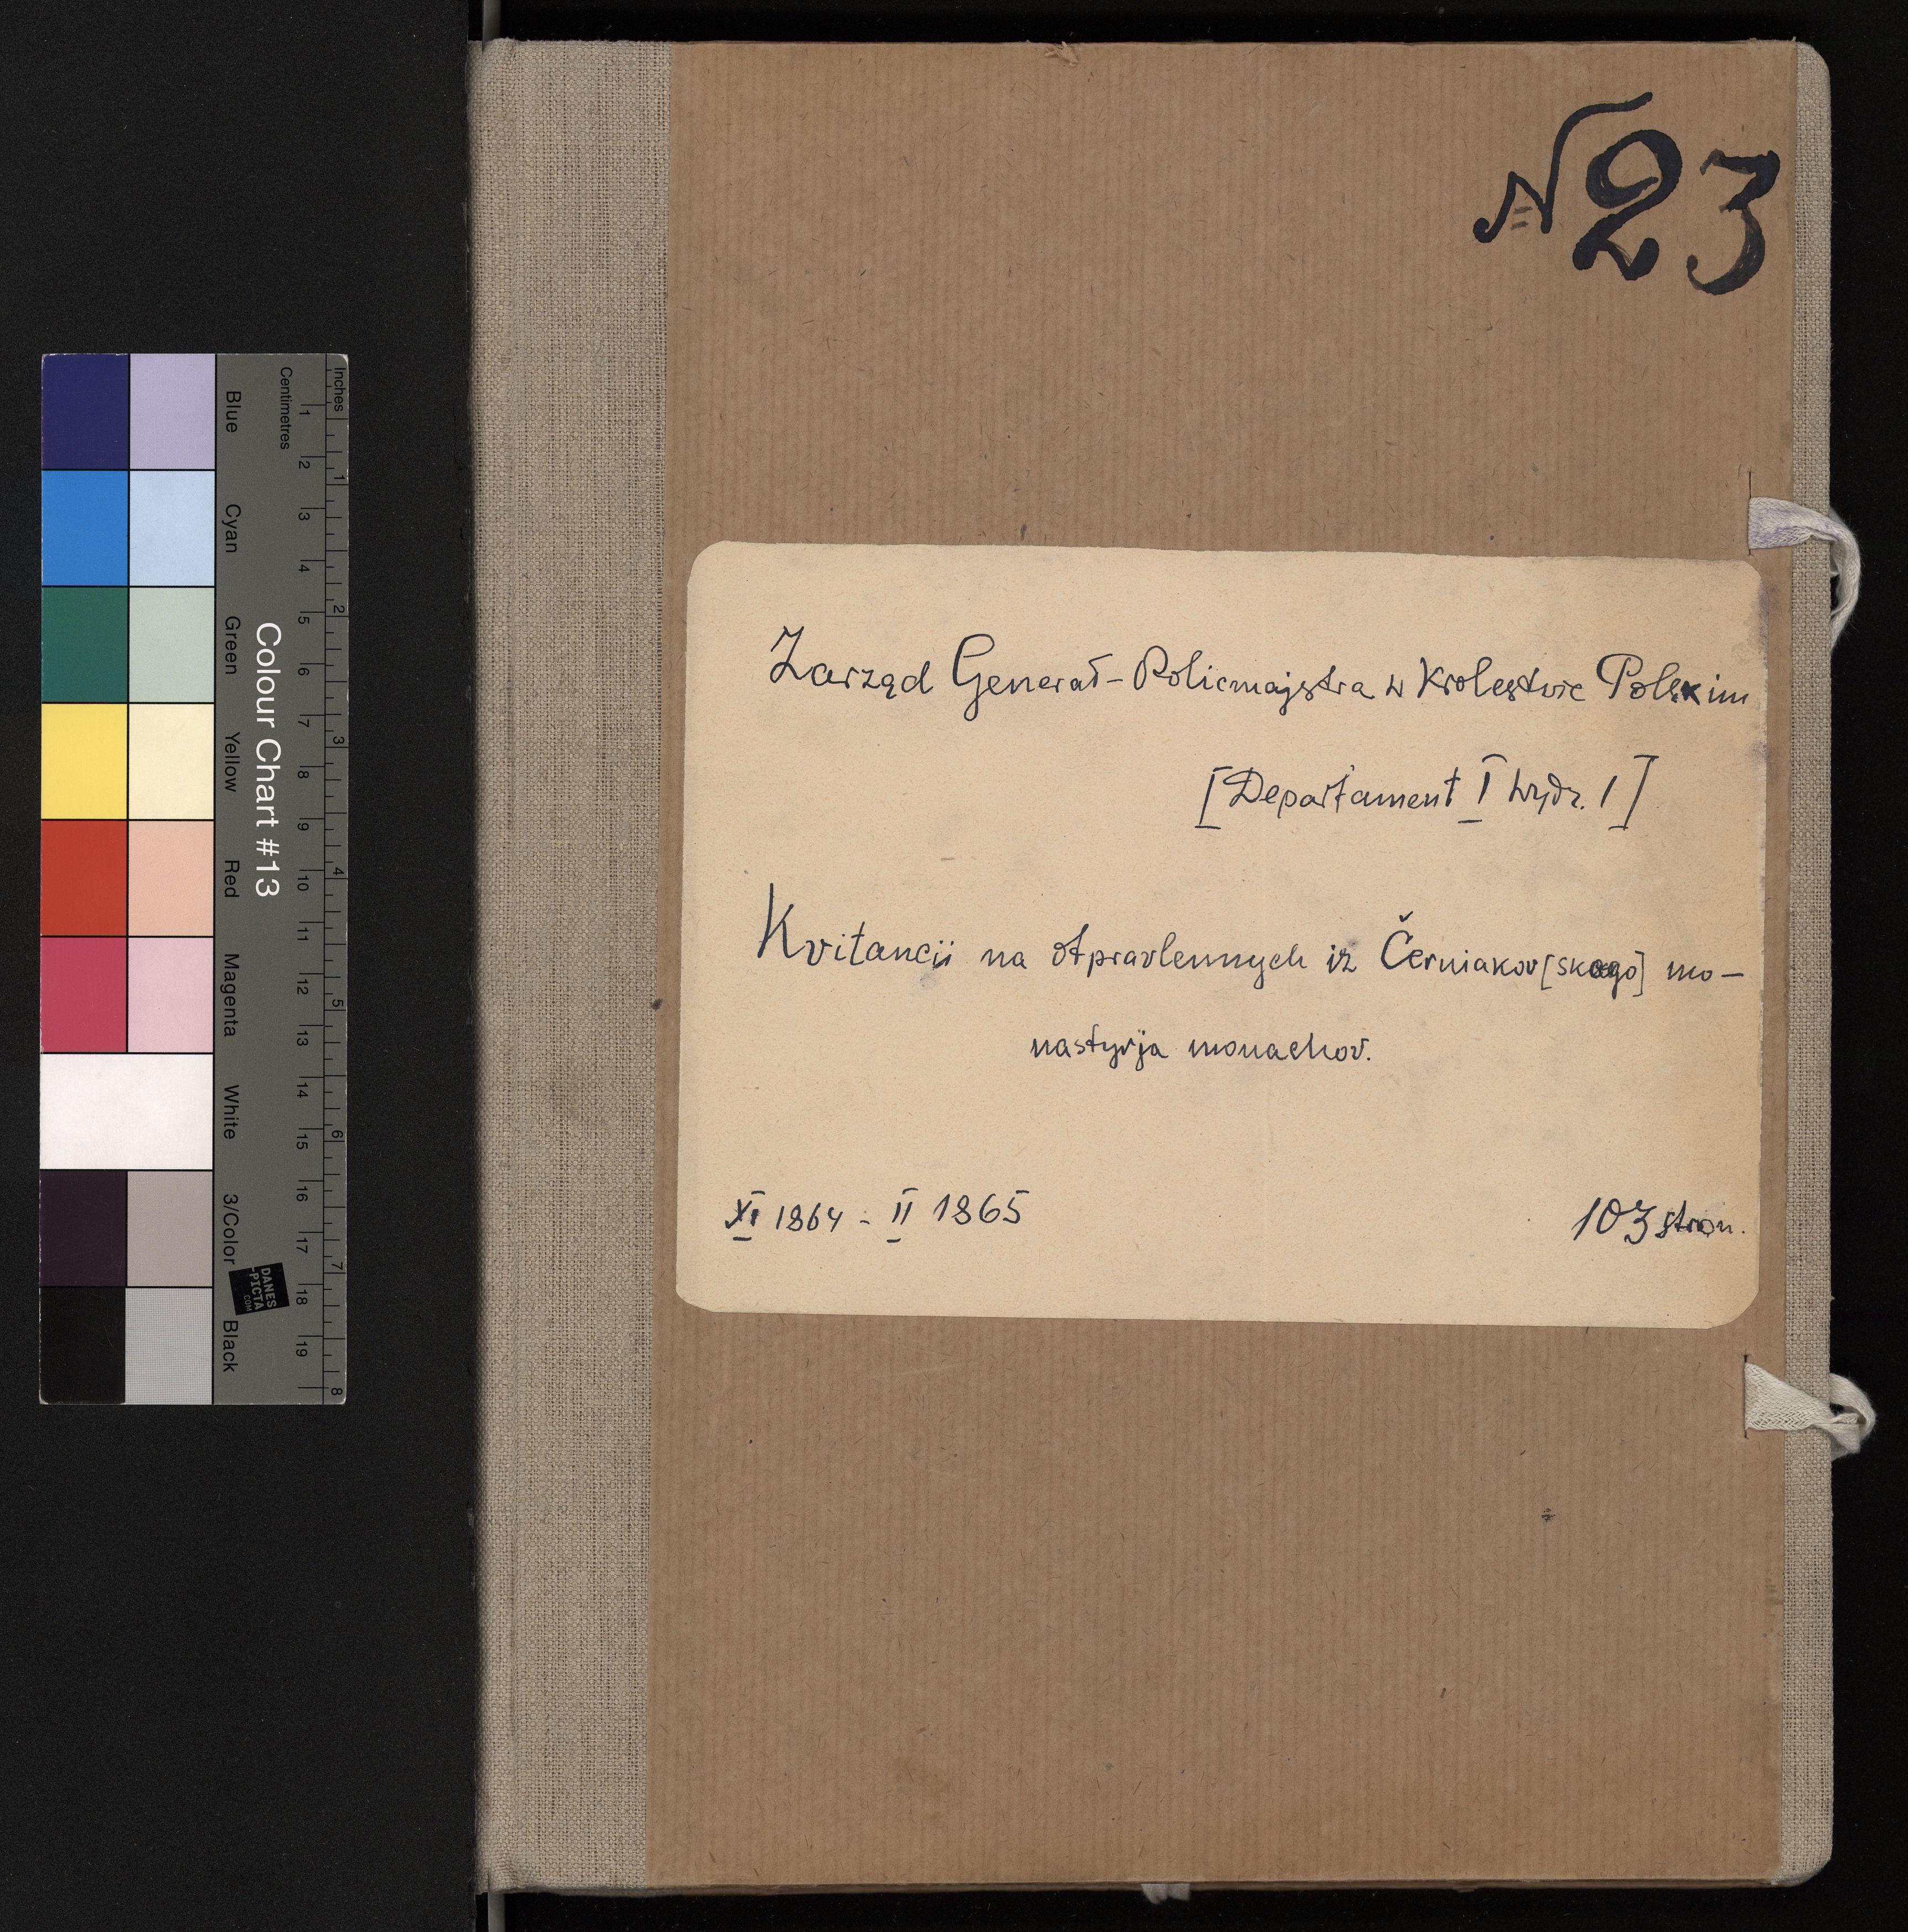 № 23
Zarząd Generał-Policmajstra w Krolestwie Polskim
[Departament I wydz. 1]
Kvitancii na otpravlennych iz Černiakov[skago] mo-
nastyrja monachov.
XI 1864 - II 1865
103 stron.
Colour Chart #13
Blue
Cyan
Green
Yellow
Red
Magenta
White
3/Color
Black
Centimetres
1 2 3 4 5 6 7 8 9 10 11 12 13 14 15 16 17 18 19
Inches
1 2 3 4 5 6 7 8
DANES
-PICTA
.COM